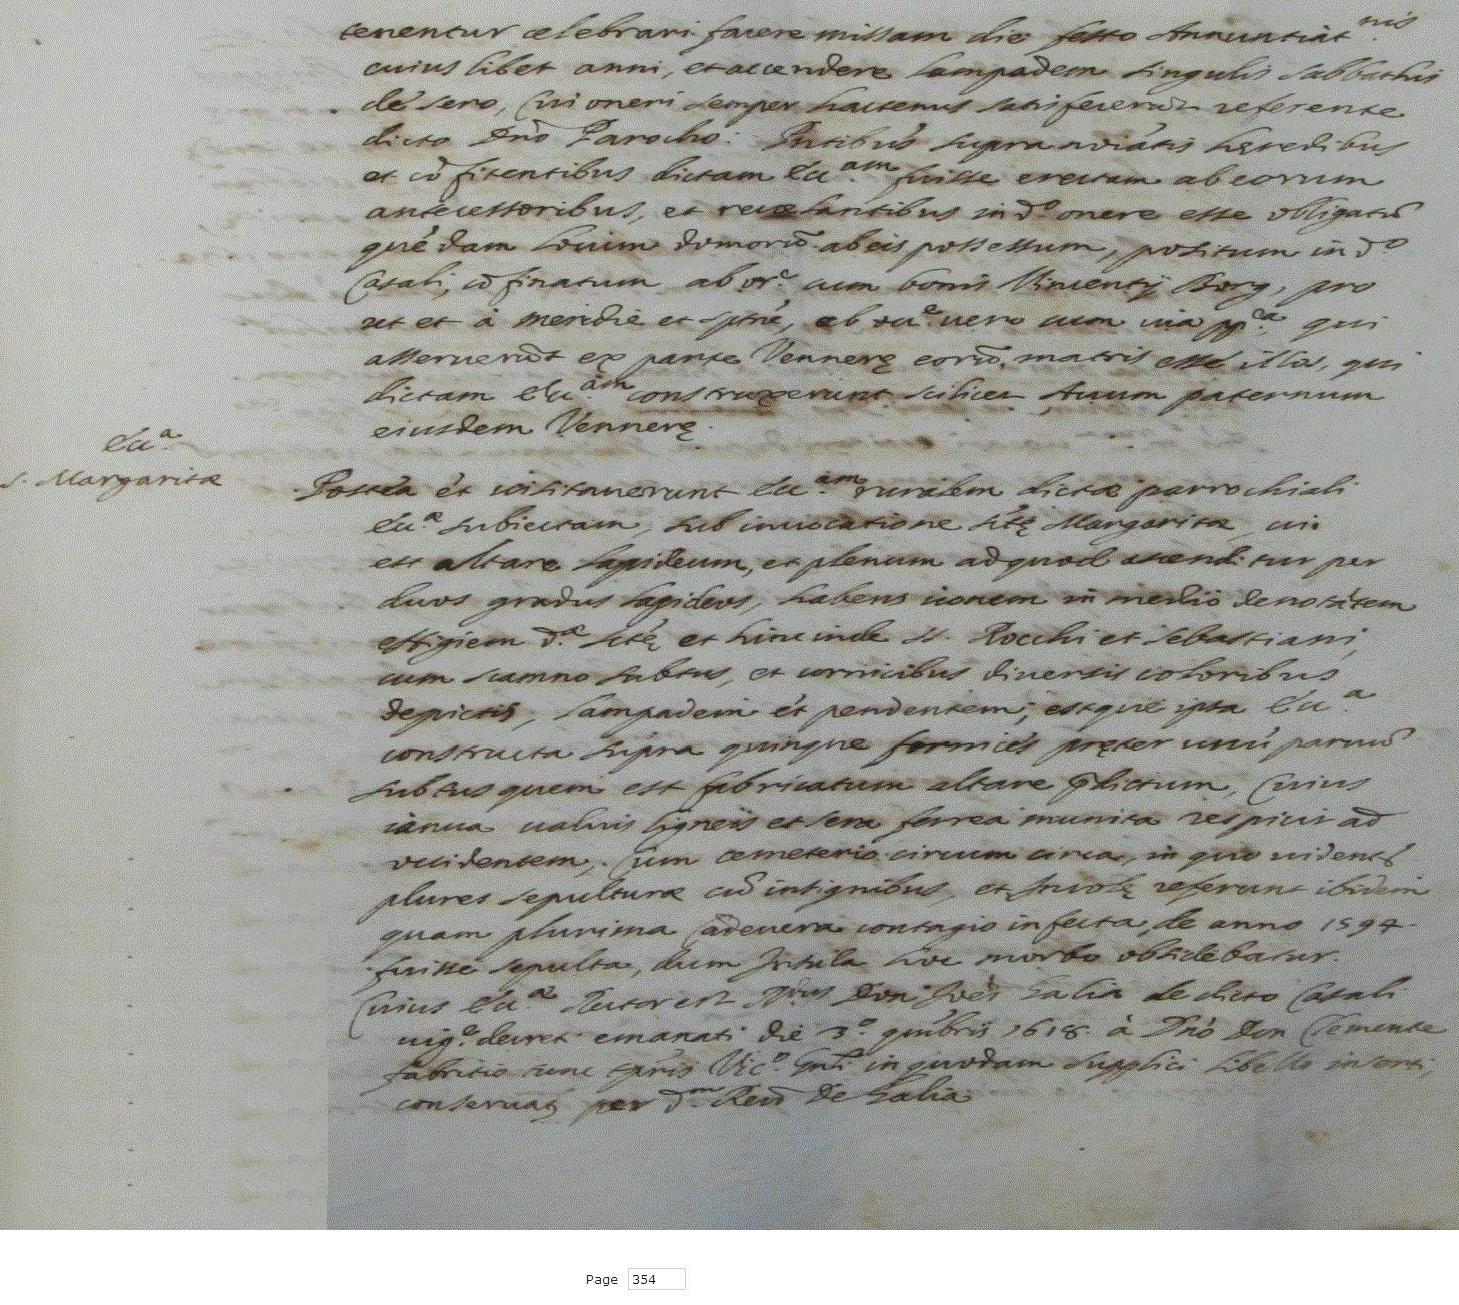 tenentur celebrari facere missam die festo Annuntiat.nis
cuius libet anni, et accendere lampadem singulis sabbathis
de sero, Cui oneri semper hactenus satisfecerūt referente
dicto Dño Parocho. Pntibus supra noiatis heredibus
et cōfitentibus dictam Ecc.am fuisse erectam ab eorum
antecessoribus, et revelantibus in d.o onere esse obligatū
quēdam locum domorū ab eis possessum, positum in d.o
Casali, cōfinatum ab or.e cum bonis Vincentij Borg, pro
ut et à meridie et sptne, ab occ.e vero cum via pp.ca, qui
asseruerūt ex parte Vennerę eorū matris esse illos, qui
dictam Ecc.am construxerunt scilicet Auum paternum
eiusdem Vennerę.
Ecc.a
S. Margaritæ
Postea ēt visitaverunt Ecc.am ruralem dictæ parrochiali
Ecc.æ subiectam, sub invocatione Stę Margaritæ, cui
est altare lapideum, et plenum ad quod ascenditur per
duos gradus lapideos, habens iconem in medio denotātem
effigiem d.æ Stę et hinc inde SS. Rocchi et Sebastiani,
cum scamno subtus, et cornicibus diversis coloribus
depictis, lampadem ēt pendentem, estque ipsa Ecc.a
constructa supra quinque fornices pręter unū parvū
subtus quem est fabricatum altare p̄dictum, Cuius
ianua valvis ligneis et sera ferrea munita respicit ad
occidentem, Cum cemeterio circum circa, in quo vident
plures sepulturæ cū insignibus, et Incolę referunt ibidem
quam plurima Cadevera contagio infecta de anno 1594
fuisse sepulta, dum Insula hoc morbo obsidebatur.
Cuius Ecc.æ Rector est Don Joēs Galia de dicto Casali
vig.e decret. emanati die 3.o 9mbris 1618. à Dño Don Clemente
fabritio tunc tpris Vic.o Gnli in quodam supplici libello inserti,
conservat per d.m Rev.d De Galia
Page 354